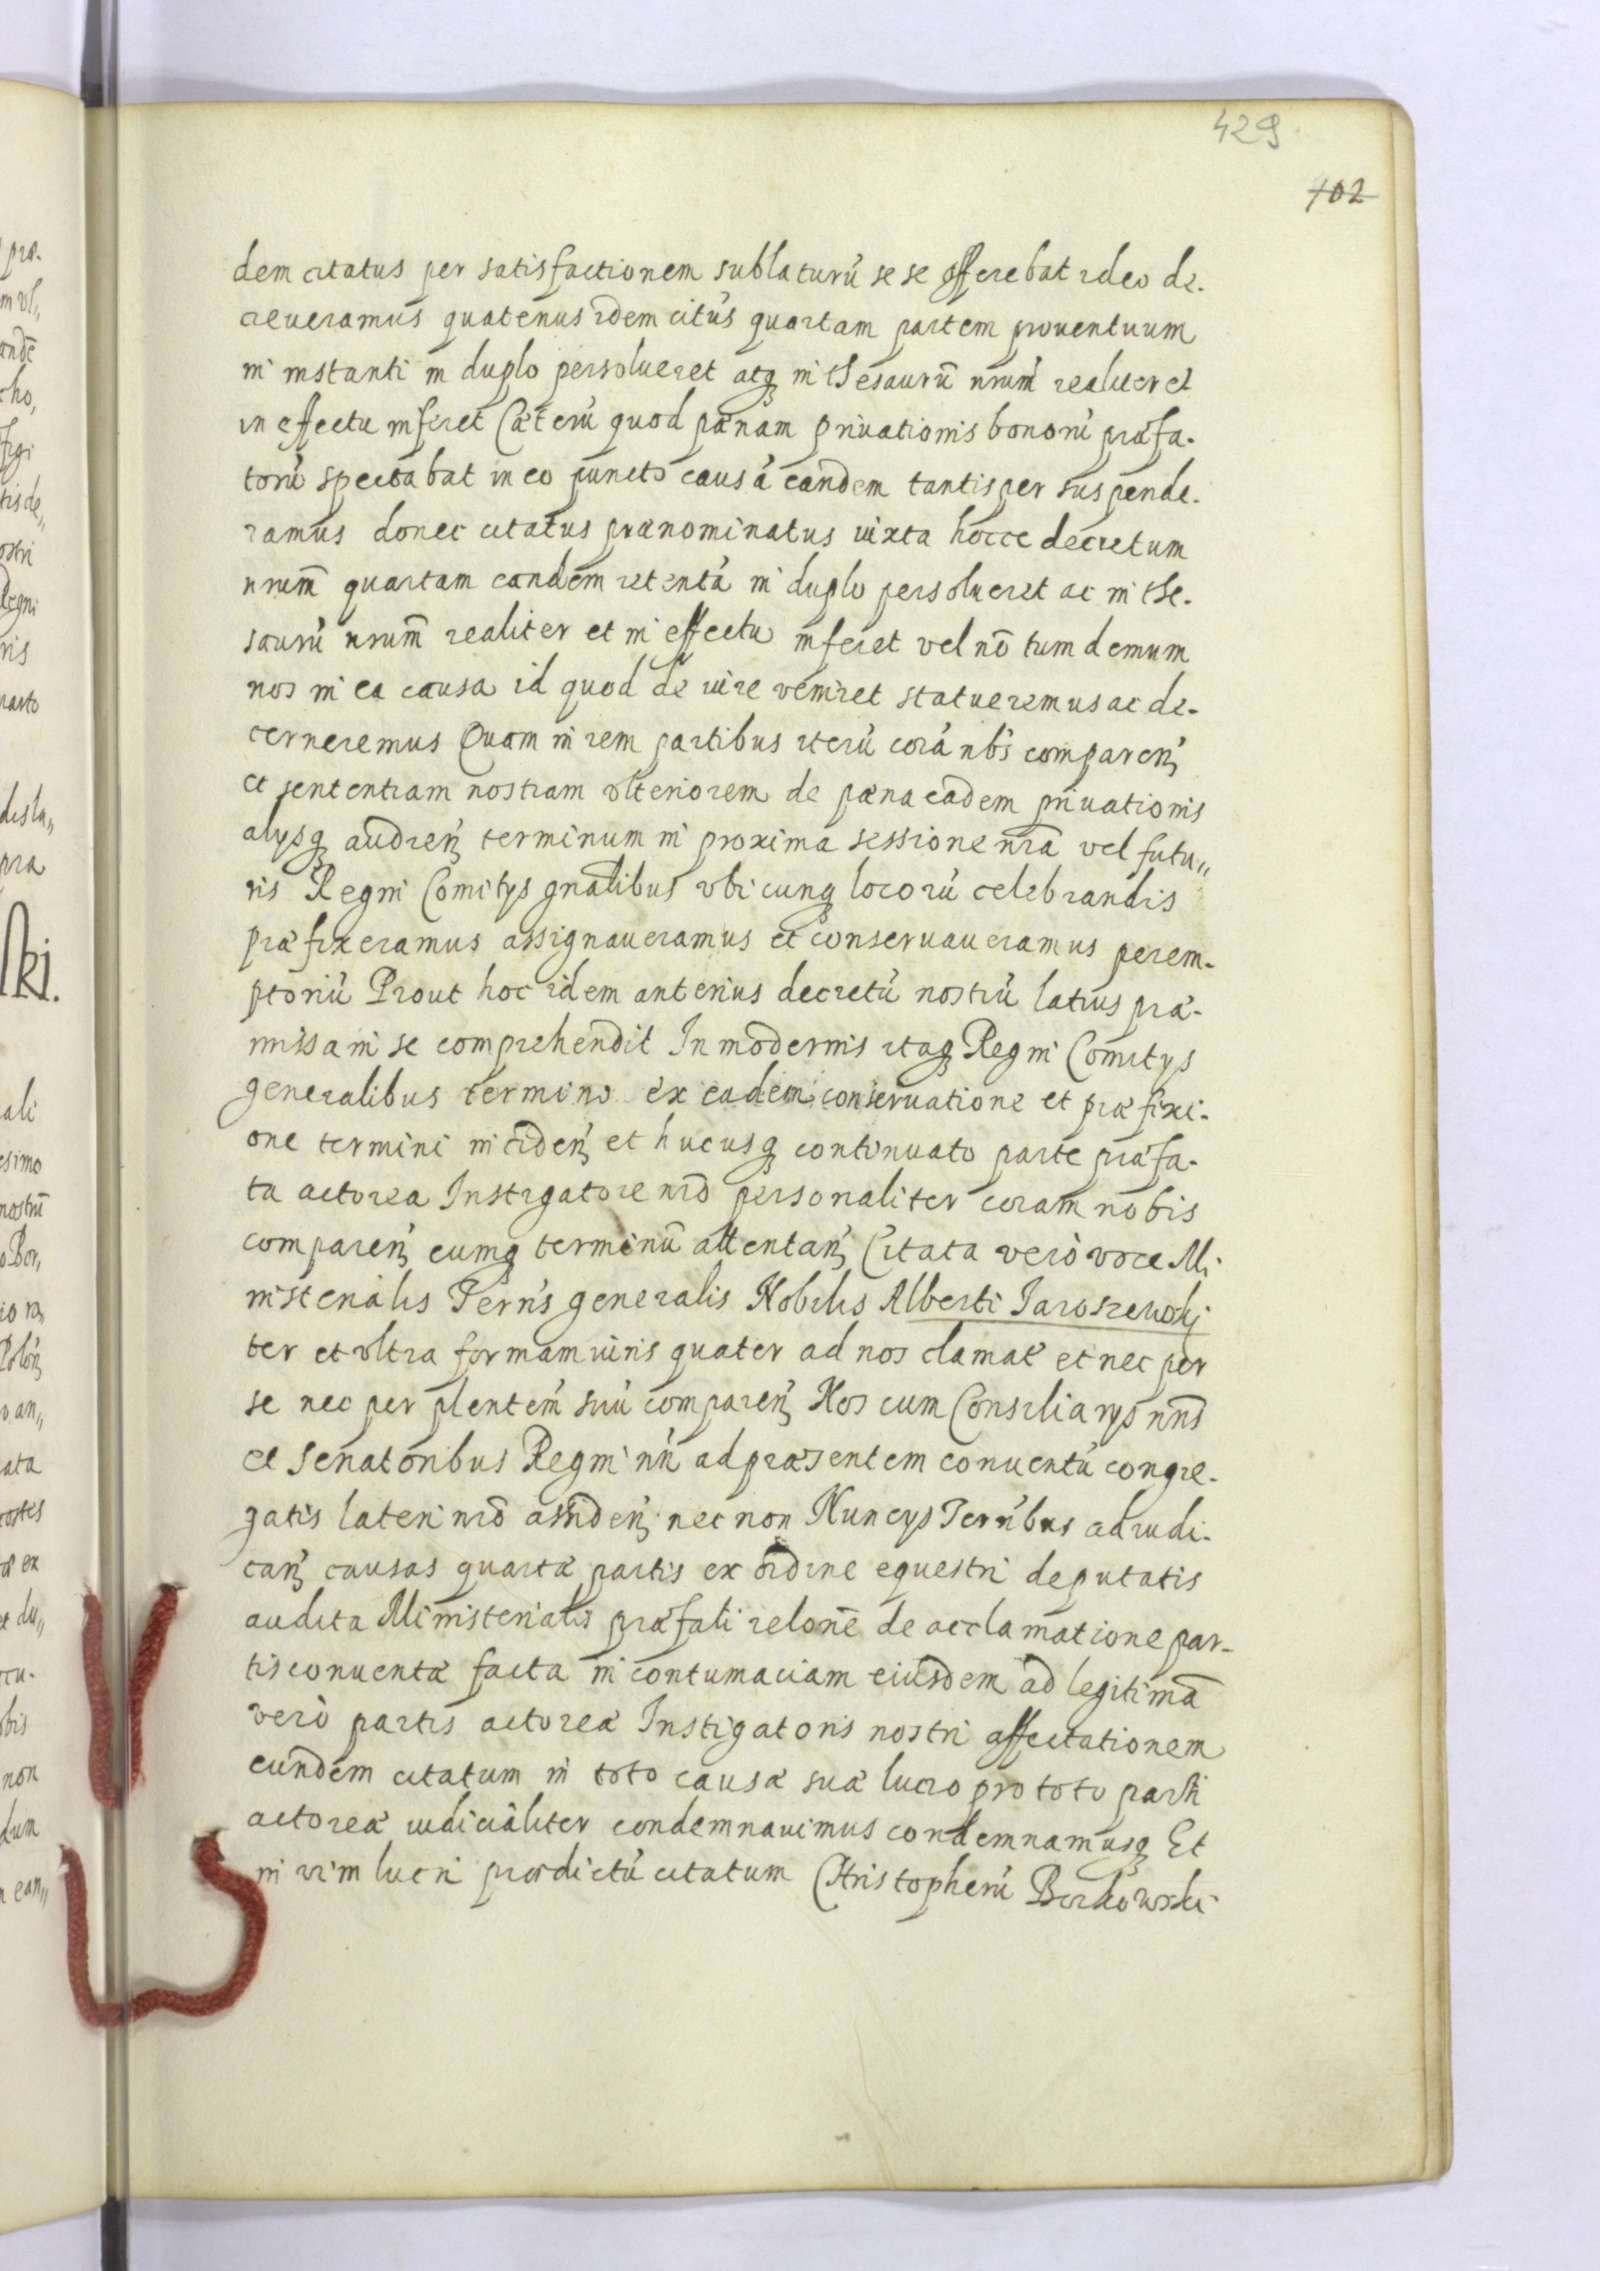 429
102
dem citatus per satisfactionem sublaturũ se se offerebat ideo de-
creueramus quatenus idem citus quartam partem prouentuum
in instanti in duplo persolueret atq in thesaurũ nrum realiter et
in effectu inferet Cæterũ quod pænam priuationis bonorũ præfa-
torũ spectabat in eo puncto causã eandem tantisper suspende-
ramus donec citatus prænominatus iuxta hocce decretum
nrum quartam eandem retentã in duplo persolueret ac in the-
saurũ nrum realiter et in effectu inferet vel nõ tum demum
nos in ea causa id quod de iure veniret statueremus ac de-
cerneremus Quam in rem partibus iterũ corã nbis comparen
et sententiam nostram vlteriorem de pæna eadem priuationis
alysq audien terminum in proxima sessione nra vel futu„
ris Regni Comitys gnalibus vbicunq locorũ celebrandis
præfixeramus assignaueramus et conseruaueramus perem-
ptoriũ Prout hoc idem anterius decretũ nostrũ latius præ-
missa in se comprehendit In modernis itaq Regni Comitys
generalibus termino ex eadem conseruatione et præfixi-
one termini inciden et hucusq continuato parte præfa-
ta actorea Instigatore nro personaliter coram nobis
comparen eumq terminũ attentan Citata verò voce Mi
nisterialis Terris generalis Nobilis Alberti Jaroszewskj
ter et vltra formam iuris quater ad nos clamat et nec per
se nec per plentem suũ comparen Nos cum Consiliarys nris
et Senatoribus Regni nri ad præsentem conuentũ congre-
gatis lateri nro assiden nec non Nuncys Terribus ad iudi-
can causas quartæ partis ex ordine equestri deputatis
audita Ministerialis præfati relone de acclamatione par-
tis conuentæ facta in contumaciam eiusdem ad legitimã
verò partis actoreæ Instigatoris nostri affectationem
eundem citatum in toto causæ suæ lucro pro toto parti
actoreæ iudicialiter condemnauimus condemnamusq Et
in vim lucri prædictũ citatum Christopherũ Borkowski